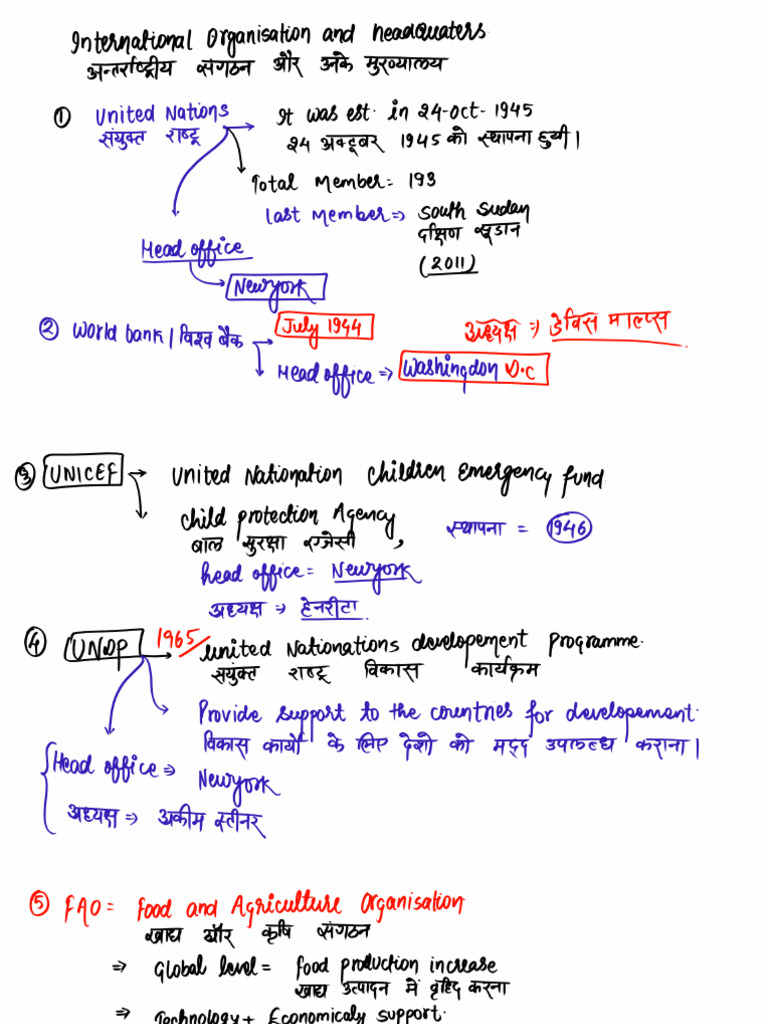 International Organisation and headquaters
अन्तर्राष्ट्रीय संगठन और उनके मुख्यालय
① United Nations → It was est. in 24-oct-1945
संयुक्त राष्ट्र 24 अक्टूबर 1945 को स्थापना हुयी।
Total Member = 193
last Member => South Sudan
दक्षिण सूडान
(2011)
Head office
Newyork
② World bank / विश्व बैंक → July 1944 अध्यक्ष => डेविस माल्पस
Head office => Washingdon D.C
③ UNICEF → United Nationation children Emergency fund
child protection Agency
बाल सुरक्षा एजेंसी, स्थापना = 1946
head office = Newyork
अध्यक्ष → हेनरीटा
④ UNDP 1965/ United Nationations developement programme.
संयुक्त राष्ट्र विकास कार्यक्रम
Provide support to the countries for developement.
विकास कार्यों के लिए देशो को मदद उपलब्ध कराना।
Head office => Newyork
अध्यक्ष => अकीम स्टीनर
⑤ FAO = Food and Agriculture Organisation
खाद्य और कृषि संगठन
=> Global level = food production increase
खाद्य उत्पादन में वृद्दि करना
=> Technology + Economicaly support.